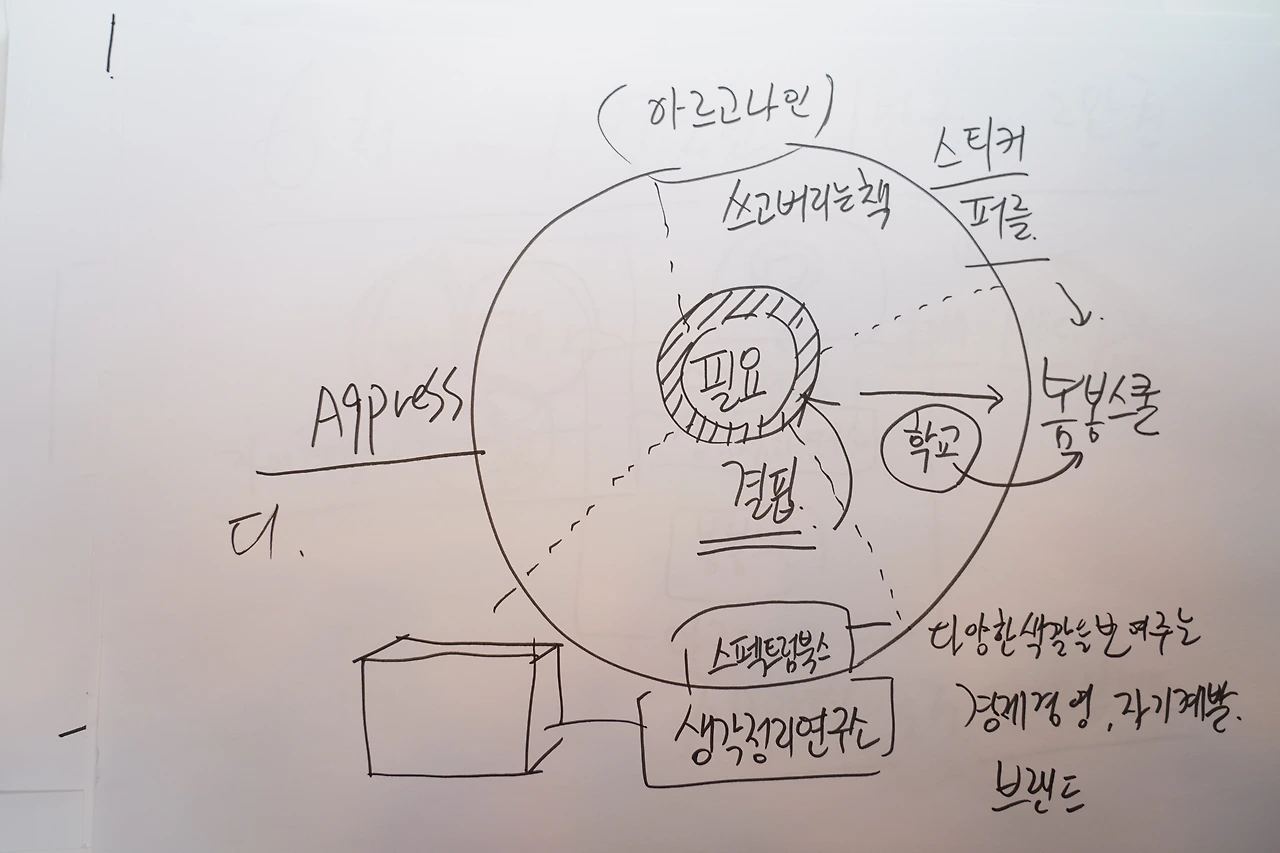 (아르고나인)
스티커
퍼즐.
쓰고버리는책
필요
Agpress
학교
결핍.
디.
스펙트럼북스
생각정리연구소
다양한색깔을보여주는
경제경영, 자기계발.
브랜드